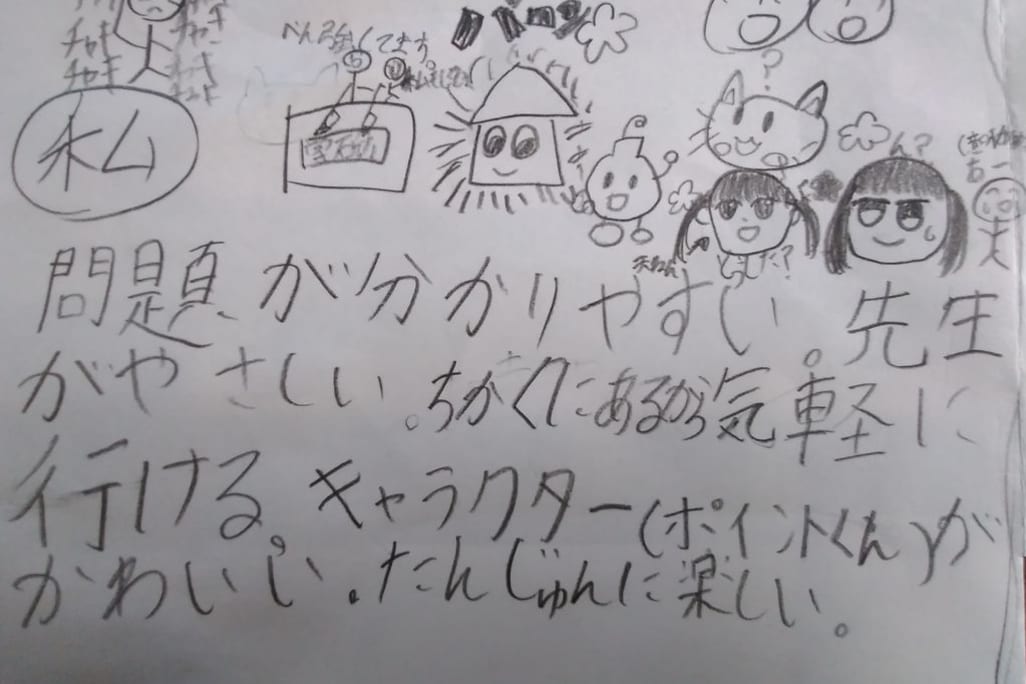 チャキ
チャキ
べん強してます。
私
ん?
どうした?
問題が分かりやすい。先生
がやさしい。ちかくにあるから気軽に
行ける。キャラクター(ポイントくん)が
かわいい。たんじゅんに楽しい。